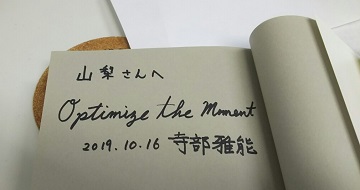 山梨さんへ
Optimize the Moment
2019.10.16 寺部雅能